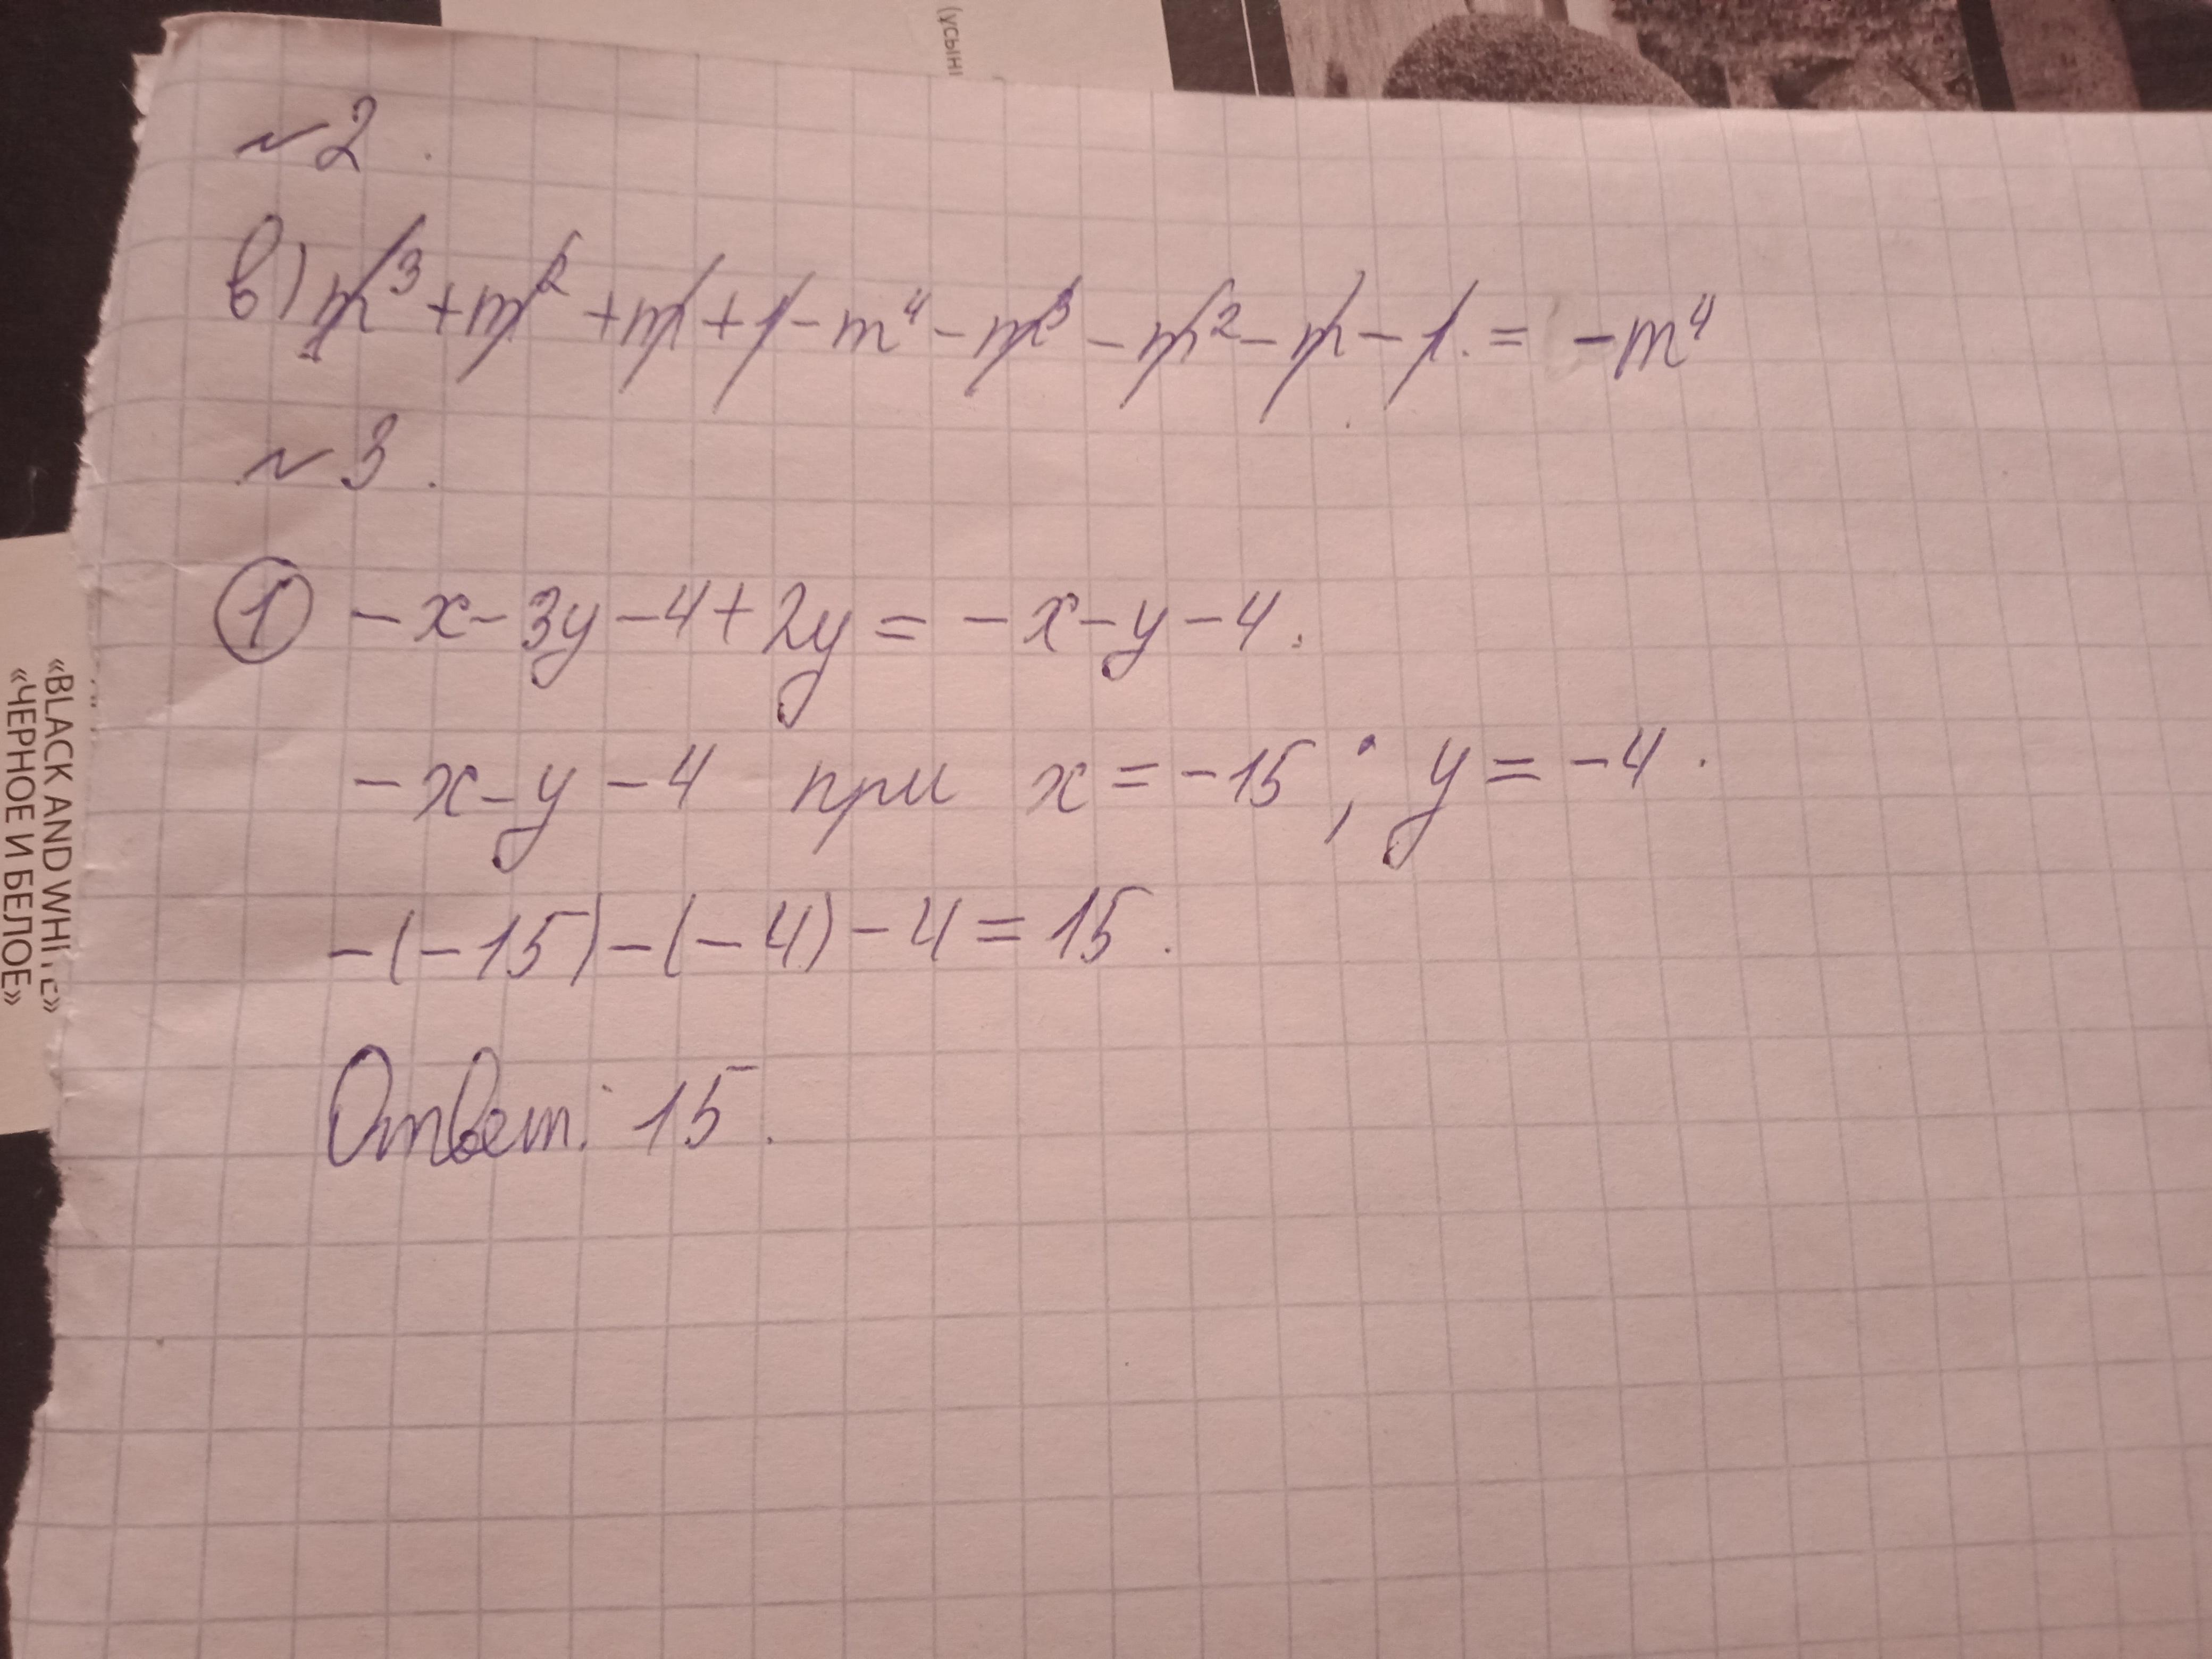 (ұсыні
№2.
в) m³ + m² + m + 1 - m⁴ - m³ - m² - m - 1. = -m⁴
№3.
① -x - 3y - 4 + 2y = -x - y - 4.
-x - y - 4 при x = -15; y = -4.
-(-15) - (-4) - 4 = 15.
Ответ: 15.
«BLACK AND WHITE»
«ЧЕРНОЕ И БЕЛОЕ»